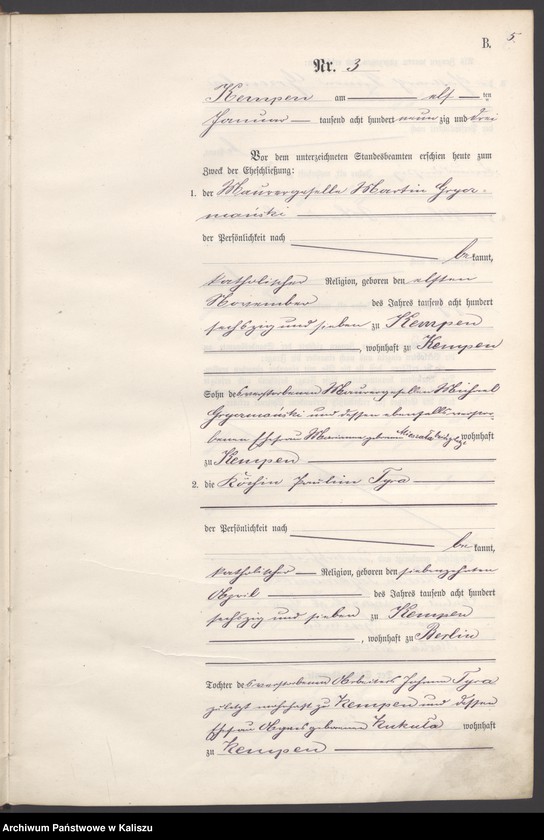 B. 5
Nr. 3
Kempen am elf ten
Januar tausend acht hundert neun zig und drei
Vor dem unterzeichneten Standesbeamten erschien heute zum
Zweck der Eheschließung:
1. der Maurergeselle Martin Gryz-
mański
der Persönlichkeit nach
be kannt,
katholischer Religion, geboren den elften
November des Jahres tausend acht hundert
sechszig und sieben zu Kempen
, wohnhaft zu Kempen
Sohn des verstorbenen Maurergesellen Michael
Gryzmański und dessen ebenfalls verstor-
benen Ehefrau Marianna geborenen wohnhaft
zu Kempen
2. die Köchin Paulina Tyra
der Persönlichkeit nach
be kannt,
katholischer Religion, geboren den siebenzehnten
April des Jahres tausend acht hundert
sechszig und sieben zu Kempen
, wohnhaft zu Berlin
Tochter des verstorbenen Arbeiters Johann Tyra
zuletzt wohnhaft zu Kempen und dessen
Ehefrau Agnes geborene Kukuła wohnhaft
zu Kempen
Archiwum Państwowe w Kaliszu